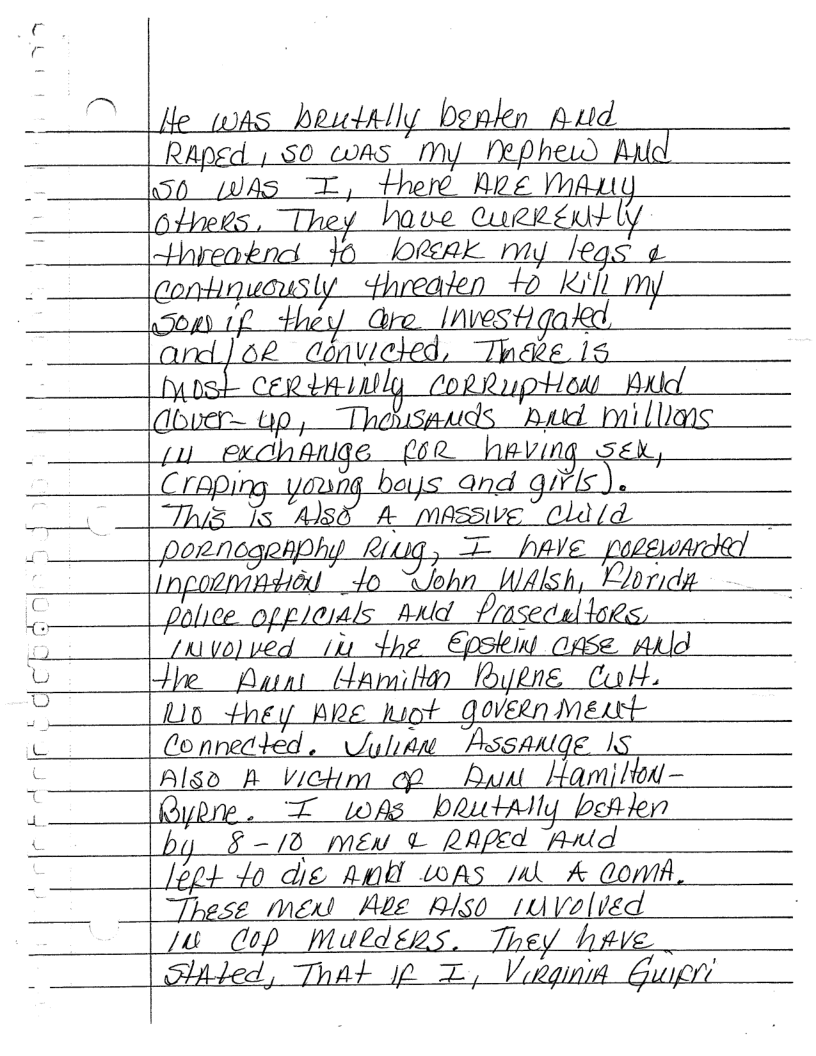 He WAS bRUtAlly bEAten ANd
RAPEd, SO WAS my Nephew ANd
SO WAS I, there ARE MANy
others. They have CURRENtly
threatend to bREAK my legs &
continuously threaten to Kill my
SON if they are investigated
and/OR convicted. ThERE is
most CERtAiNly CORRuptioN ANd
cover-up, ThousANds ANd millions
iN exchANge foR hAViNg SEX,
(raping young boys and girls).
This is Also A MASSIVE child
PORNOgRAphy RiNg, I hAVE foREWARded
iNfoRMAtioN to John WAlsh, FloRidA
police officiAls ANd Prosecutors
iNvolved iN the EpsteiN CASE ANd
the ANN HAmiltoN ByRNE Cult.
NO they ARE Not gOVERNMENt
CoNNected. JuliAN ASSANgE is
Also A VICtim of ANN HamiltoN-
ByRNe. I WAS bRUtAlly bEAten
by 8-10 MEN & RAPEd ANd
lEft to diE ANd WAS iN A COMA.
ThESE MEN ARE Also iNVOlVEd
iN COP MURdERS. They hAVE
StAted, ThAt if I, ViRgiNiA Guifri